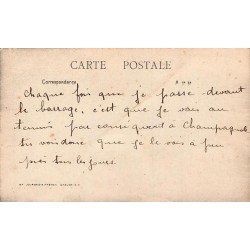 CARTE POSTALE
Correspondance
Chaque fois que je passe devant
le barrage, c'est que je vais au
tennis par conséquent à Champagnol
tu vois donc que je le vois à peu
près tous les jours.